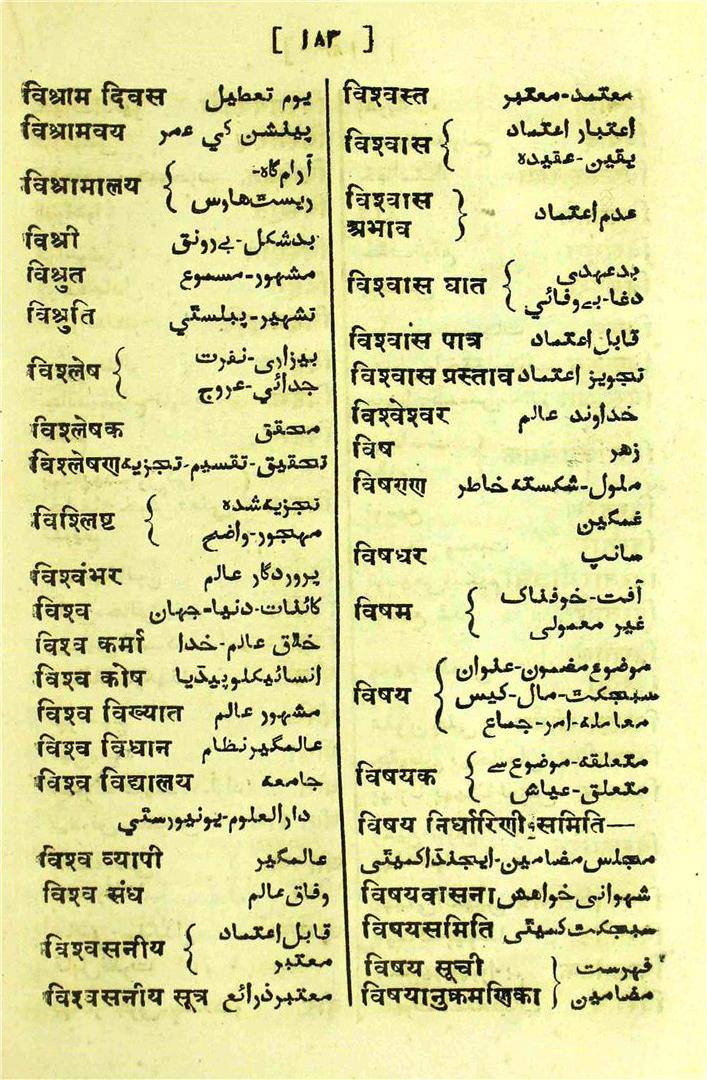 [ ۱۸۳ ]
विश्राम दिवस یوم تعطیل
विश्रामवय پینشن کي عمر
विश्रामालय { آرام گاہ-
ریست ھاوس
विश्री بدشکل-بے رونق
विश्रुत مشہور-مسموع
विश्रुति تشہیر-پبلسٹي
विश्लेष { بیزاری-نفرت
جدائي-عروج
विश्लेषक محقق
विश्लेषण تحقیق-تقسیم-تجزیہ
विश्लिष्ट { تجزیہ شدہ
مہجور-واضح
विश्वंभर پروردگار عالم
विश्व کائنات-دنیا-جہان
विश्व कर्मा خلاق عالم-خدا
विश्व कोष انسائیکلوپیڈیا
विश्व विख्यात مشہور عالم
विश्व विधान عالمگیر نظام
विश्व विद्यालय جامعہ
دارالعلوم-یونیورسٹي
विश्व व्यापी عالمگیر
विश्व संध وفاق عالم
विश्वसनीय { قابل اعتماد
معتبر
विश्वसनीय सूत्र معتبر ذرائع
विश्वस्त معتمد-معتبر
विश्वास { اعتبار اعتماد
یقین-عقیدہ
विश्वास
अभाव } عدم اعتماد
विश्वास घात { بدعہدی
دغا-بے وفائي
विश्वास पात्र قابل اعتماد
विश्वास प्रस्ताव تجویز اعتماد
विश्वेश्वर خداوند عالم
विष زھر
विषण्ण ملول-شکستہ خاطر
غمگین
विषधर سانپ
विषम { آفت-خوفناک
غیر معمولی
विषय { موضوع مضمون-عنوان
سبجکٹ-مال-کیس
معاملہ-امر-جماع
विषयक { متعلقہ-موضوع سے
متعلق-عیاش
विषय निर्धारिणी समिति—
مجلس مضامین-ایجنڈا کمیٹی
विषयवासना شہوانی خواھش
विषयसमिति سبجکٹ کمیٹی
विषय सूची } فہرست
विषयानुक्रमणिका } مضامین